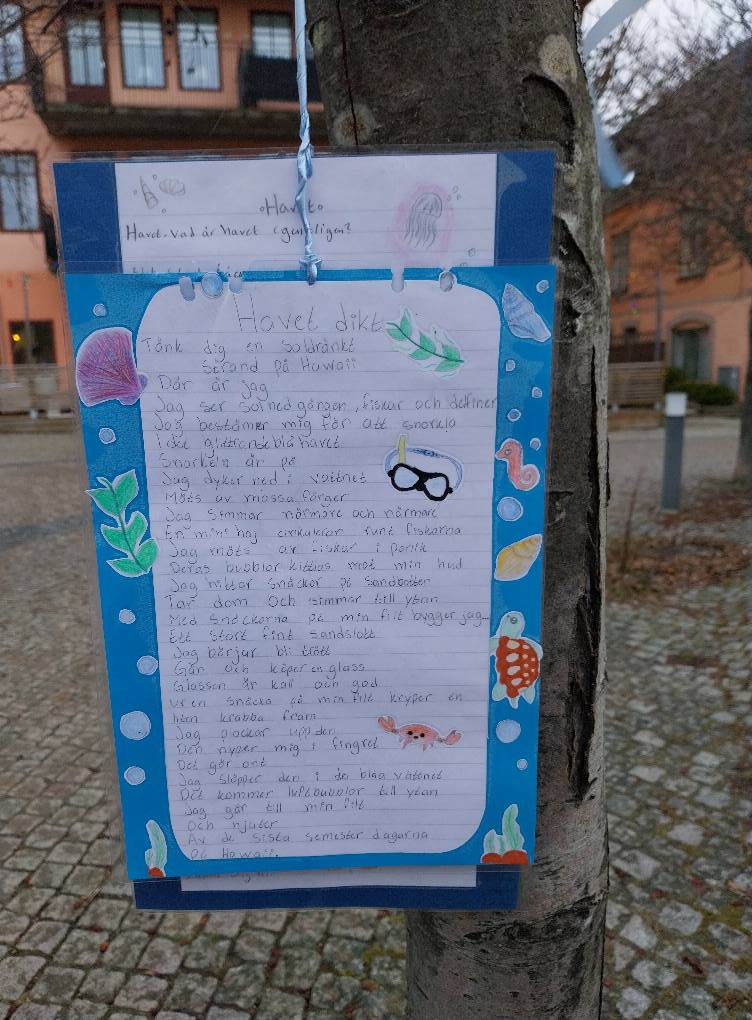 Havet
Havet. Vad är havet egentligen?
Havet dikt
Tänk dig en soldränkt
strand på Hawaii
Där är jag
Jag ser solnedgången, fiskar och delfiner
Jag bestämer mig för att snorkla
I det glittrande blå havet
Snorkeln är på
Jag dyker ned i vattnet
Möts av massa färger
Jag simmar närmare och närmare
En mini haj cirkulerar runt fiskarna
Jag möts av fiskar i panik
Deras bubblor kittlas mot min hud
Jag hittar snäckor på sandbotten
Tar dom och simmar till ytan
Med snäckorna på min filt bygger jag...
Ett stort fint sandslott
Jag börjar bli trött
Går och köper en glass
Glassen är kall och god
Ur en snäcka på min filt kryper en
liten krabba fram
Jag plockar upp den
Den nyper mig i fingret
Det gör ont
Jag släpper den i de blåa vattnet
Det kommer luftbubblor till ytan
Jag går till min filt
Och njuter
Av de sista semester dagarna
På Hawaii.